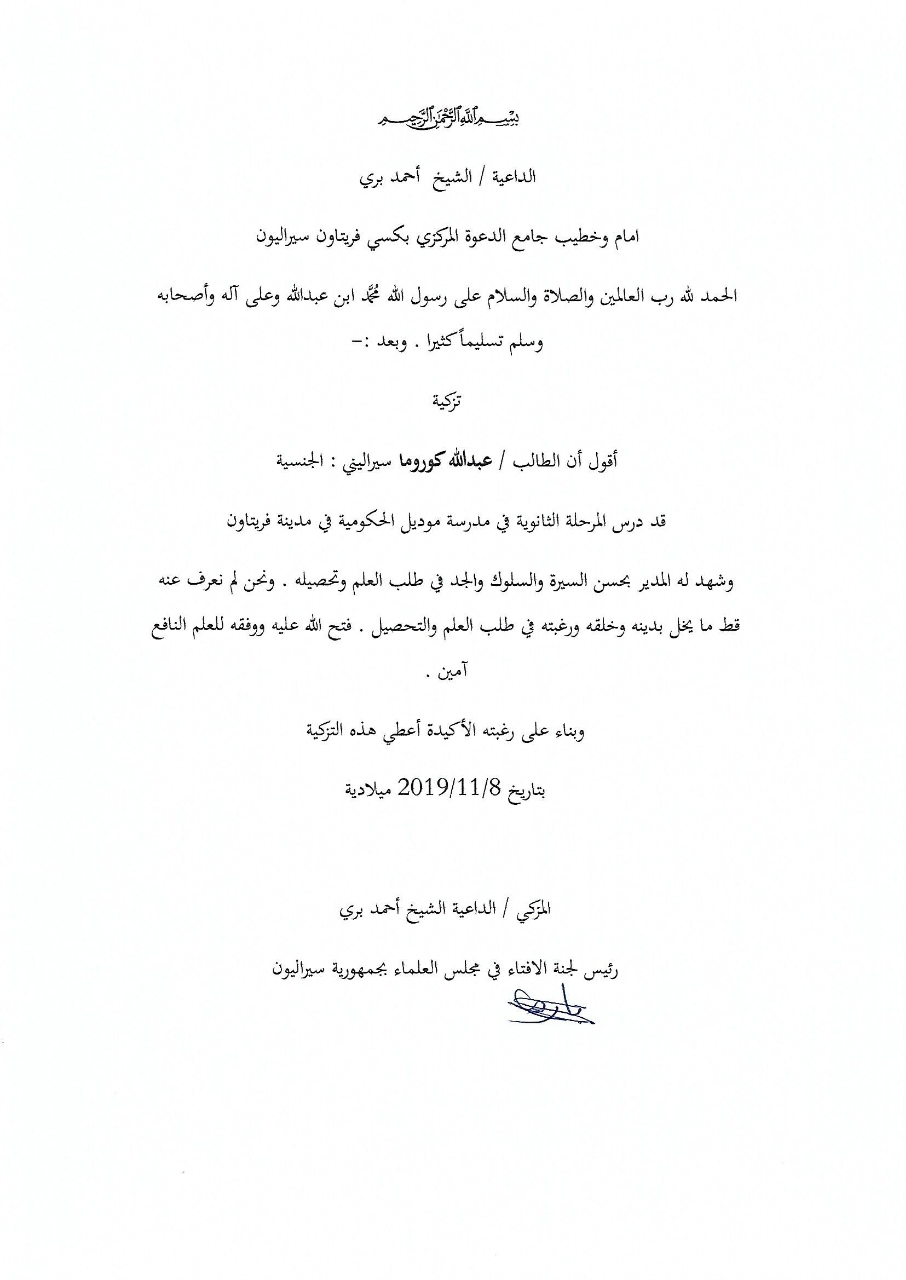 بسم الله الرحمن الرحيم
الداعية / الشيخ أحمد بري
امام وخطيب جامع الدعوة المركزي بكسي فريتاون سيراليون
الحمد لله رب العالمين والصلاة والسلام على رسول الله محمد ابن عبدالله وعلى آله وأصحابه
وسلم تسليماً كثيرا . وبعد :–
تزكية
أقول أن الطالب / عبدالله كوروما سيراليني : الجنسية
قد درس المرحلة الثانوية في مدرسة موديل الحكومية في مدينة فريتاون
وشهد له المدير بحسن السيرة والسلوك والجد في طلب العلم وتحصيله . ونحن لم نعرف عنه
قط ما يخل بدينه وخلقه ورغبته في طلب العلم والتحصيل . فتح الله عليه ووفقه للعلم النافع
آمين .
وبناء على رغبته الأكيدة أعطي هذه التزكية
بتاريخ 2019/11/8 ميلادية
المزكي / الداعية الشيخ أحمد بري
رئيس لجنة الافتاء في مجلس العلماء بجمهورية سيراليون